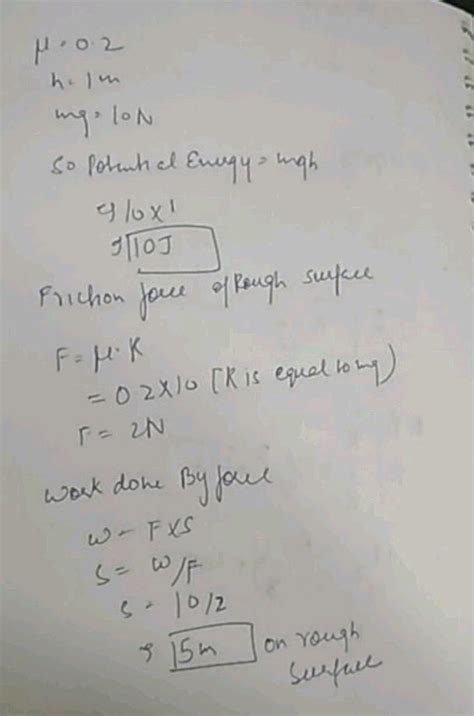 μ = 0.2
h = 1 m
mg = 10N
so Potential Energy = mgh
⇒ 10 x 1
⇒ 10J
Friction force of Rough surface
F = μ. K
= 0 2 X 10 [K is equal to mg)
F = 2N
work done By force
w = F x S
S = W/F
S = 10/2
⇒ 5m on rough
surface